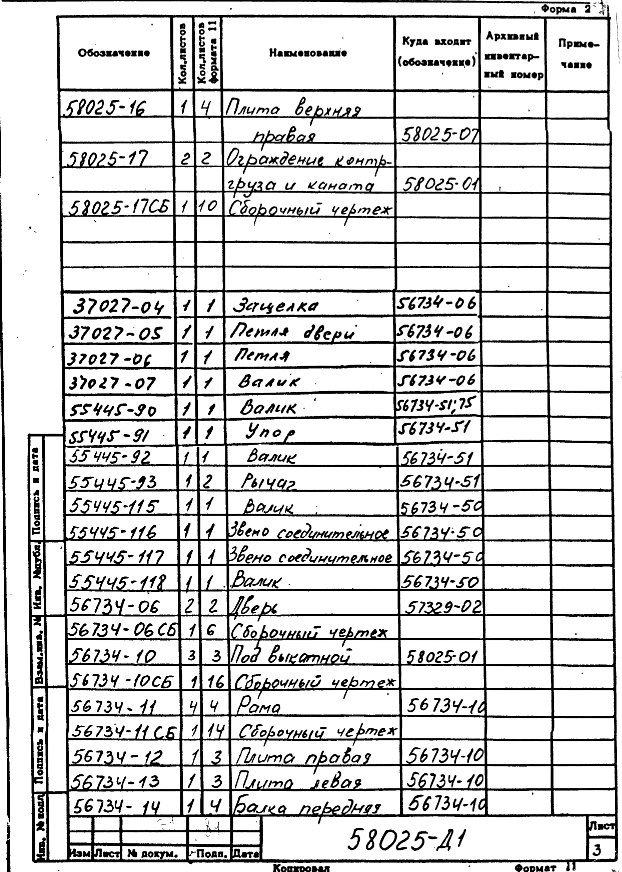 Форма 2
Обозначение Кол.листов Кол.листов формата 11 Наименование Куда входит (обозначение) Архивный инвентарный номер Примечание
58025-16 1 4 Плита верхняя
правая 58025-07
58025-17 2 2 Ограждение контр-
груза и каната 58025-01
58025-17СБ 1 10 Сборочный чертеж
37027-04 1 1 Защелка 56734-06
37027-05 1 1 Петля двери 56734-06
37027-06 1 1 Петля 56734-06
37027-07 1 1 Валик 56734-06
55445-90 1 1 Валик 56734-51;75
55445-91 1 1 Упор 56734-51
55445-92 1 1 Валик 56734-51
55445-93 1 2 Рычаг 56734-51
55445-115 1 1 Валик 56734-50
55445-116 1 1 Звено соединительное 56734-50
55445-117 1 1 Звено соединительное 56734-50
55445-118 1 1 Валик 56734-50
56734-06 2 2 Дверь 57329-02
56734-06СБ 1 6 Сборочный чертеж
56734-10 3 3 Под выкатной 58025-01
56734-10СБ 1 16 Сборочный чертеж
56734-11 4 4 Рама 56734-10
56734-11СБ 1 14 Сборочный чертеж
56734-12 1 3 Плита правая 56734-10
56734-13 1 3 Плита левая 56734-10
56734-14 1 4 Балка передняя 56734-10
Подпись и дата
Инв. №дубл.
Взам.инв. №
Подпись и дата
Инв. №подл
58025-Д1
Лист
3
Изм Лист № докум. Подп. Дата
Копировал Формат 11